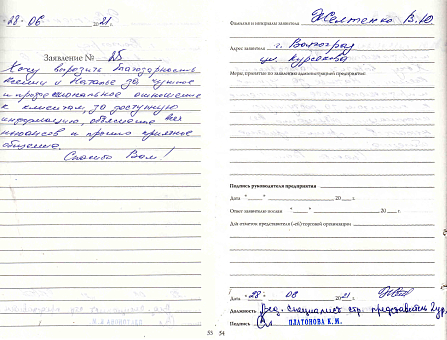 28. 06 2021.
Заявление № 25
Хочу выразить благодарность
Ксении и Наталье за чуткое
и профессиональное отношение
к клиентам, за доступную
информацию, объяснение всех
нюансов и просто приятное
общение.
Спасибо Вам!
53
Фамилия и инициалы заявителя Желтенко В.Ю
Адрес заявителя г. Волгоград
ул.
Меры, принятые по заявлению администрацией предприятия:
Подпись руководителя предприятия
Дата " " 20 г.
Ответ заявителю послан " " 20 г.
Для отметок представителя (-ей) торговой организации
Дата "28" 06 2021 г.
Должность Вед. специалист стр. представитель
Подпись ПЛАТОНОВА К.М.
54